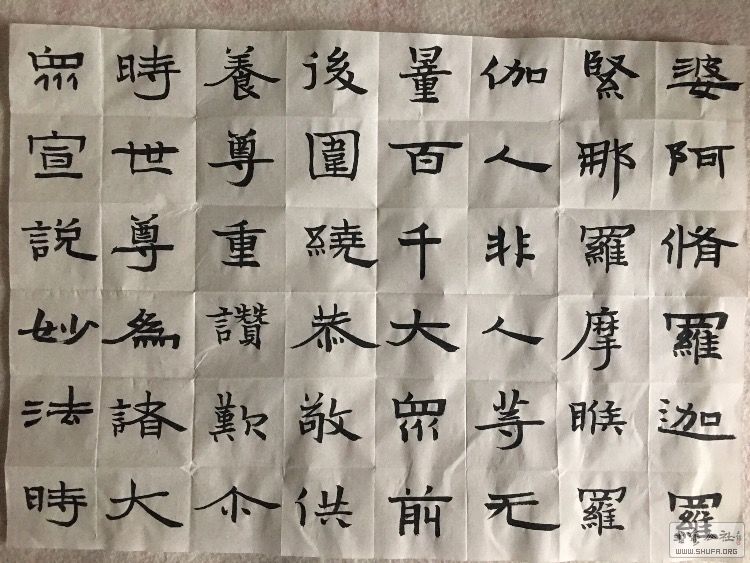 婆阿脩羅迦羅
緊那羅摩睺羅
伽人非人等无
量百千大眾前
後圍繞恭敬供
養尊重讚歎尒
時世尊為諸大
眾宣說妙法時
WWW.SHUFA.ORG